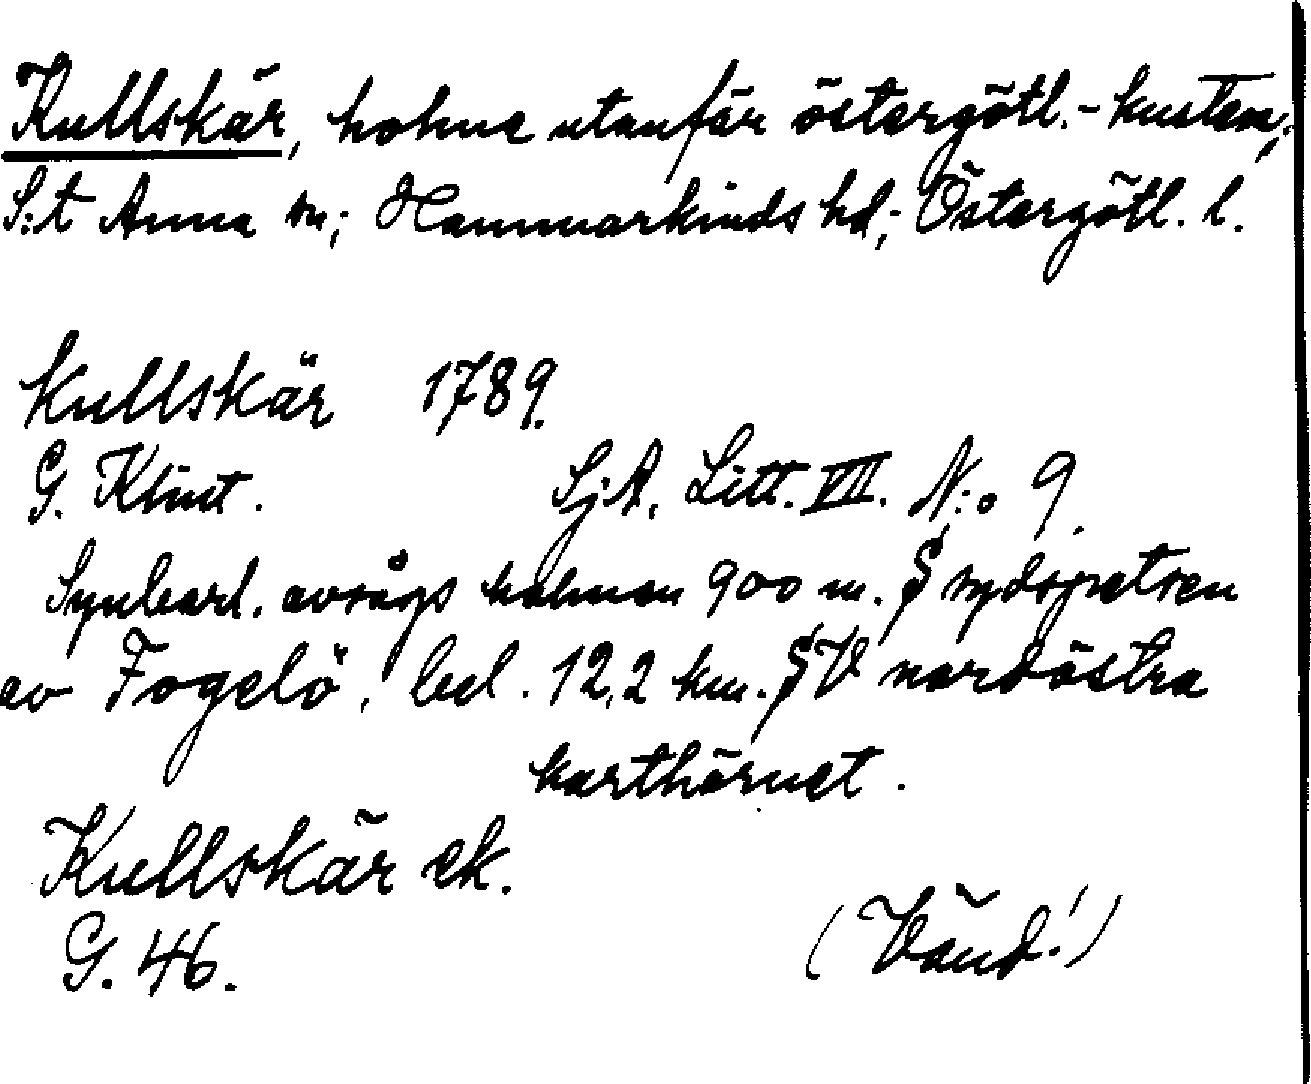 Kullskär, holme utanför östergötl.-kusten;
S:t Anna sn; Hammarkinds hd; Östergötl. l.
Kullskär 1789.
G. Klint. SjA. Litt. VII. N:o 9.
Synbarl. avsågs holmen 900 m. S sydspetsen
av Fogelö, bel. 12,2 km. SV nordöstra
karthörnet.
Kullskär ek.
G. 46. (Vänd!)